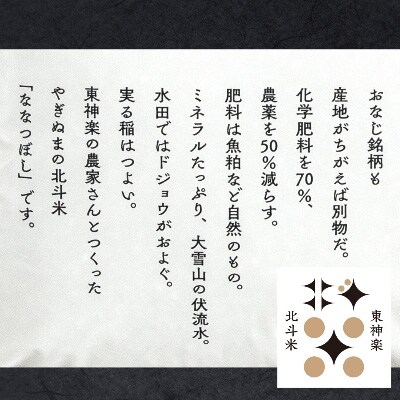 おなじ銘柄も
産地がちがえば別物だ。
化学肥料を70%、
農薬を50%減らす。
肥料は魚粕など自然のもの。
ミネラルたっぷり、大雪山の伏流水。
水田ではドジョウがおよぐ。
実る稲はつよい。
東神楽の農家さんとつくった
やぎぬまの北斗米
「ななつぼし」です。
東神楽
北斗米